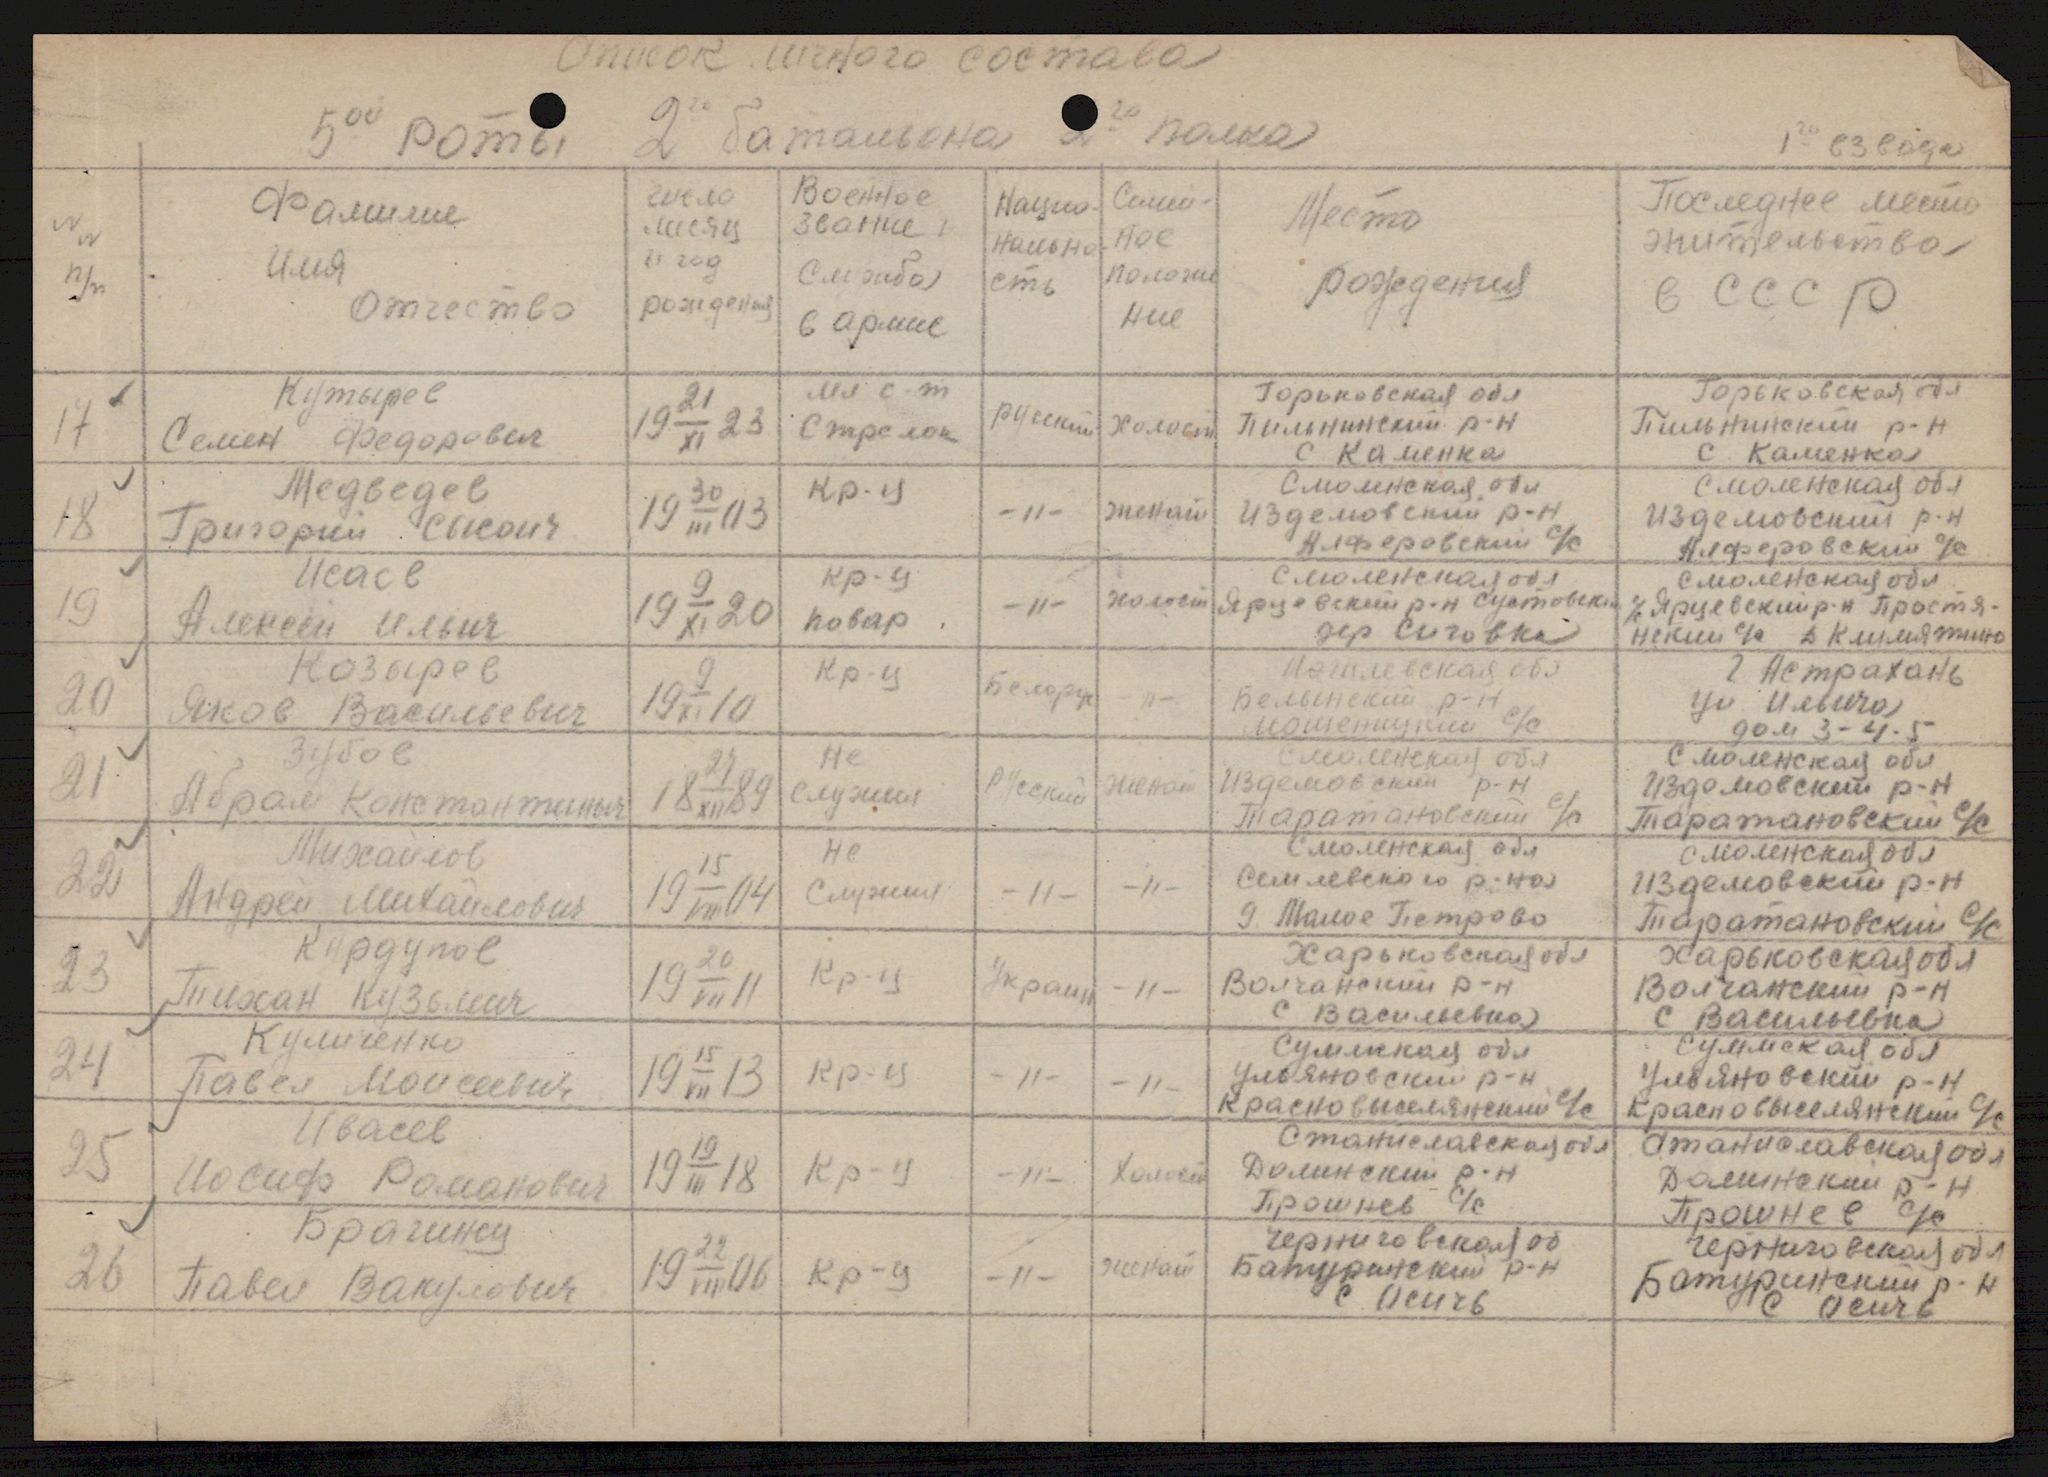 Список личного состава
5ой роты 2го батальона 2го полка 1го взвода
NN п/п
Фамилие Имя Отчество
число месяц и год рождения
Военное звание, Служба в армие
Национальность
Семейное положение
Место рождения
Последнее место жительства в СССР
17 Кутырев Семен Федорович
19 21/XI 23
мл с-т Стрелок
русский
холост
Горьковская обл
Пильнинский р-н
с Каменка
Горьковская обл
Пильнинский р-н
с. Каменка
18 Медведев Григорий Сысоич
19 30/III 03
Кр-ц
-"-
женат
Смоленская обл
Издемовский р-н
Алферовский с/с
Смоленская обл
Издемовский р-н
Алферовский с/с
19 Исаев Алексей Ильич
19 9/XI 20
кр-ц повар
-"-
холост
Смоленская обл
Ярцевский р-н
дер Сиговка
Смоленская обл
Ярцевский р-н Простя-
нский с/с д Климятино
20 Козырев Яков Васильевич
19 9/XI 10
Кр-ц
Белорус
-"-
Могилевская обл
Белынский р-н
Мошеницкий с/с
г Астрахань
Ул Ильича
дом 3-4-5
21 Зубов Абрам Константиныч
18 27/XII 89
Не служил
Русский
женат
Смоленская обл
Издемовский р-н
Таратановский с/с
Смоленская обл
Издемовский р-н
Таратановский с/с
22 Михайлов Андрей Михайлович
19 15/VIII 04
Не Служил
-"-
-"-
Смоленская обл
Семлевского р-на
д. Малое Петрово
Смоленская обл
Издемовский р-н
Таратановский с/с
23 Кирдупов Тихан Кузьмич
19 20/VII 11
Кр-ц
Украин
-"-
Харьковская обл
Волчанский р-н
С Васильевка
Харьковская обл
Волчанский р-н
С Васильевка
24 Куличенко Павел Моисеевич
19 15/VII 13
Кр-ц
-"-
-"-
Суммская обл
Ульяновский р-н
Красновыселянский с/с
Суммская обл
Ульяновский р-н
Красновыселянский с/с
25 Ивасев Иосиф Романович
19 19/III 18
Кр-ц
-"-
Холост
Станиславская обл
Долинский р-н
Прошнев с/с
Станиславская обл
Долинский р-н
Прошнев с/с
26 Брагинец Павел Вакулович
19 22/VIII 06
Кр-ц
-"-
женат
Черниговская об
Батуринский р-н
С Осичь
Черниговская обл
Батуринский р-н
С Осичь